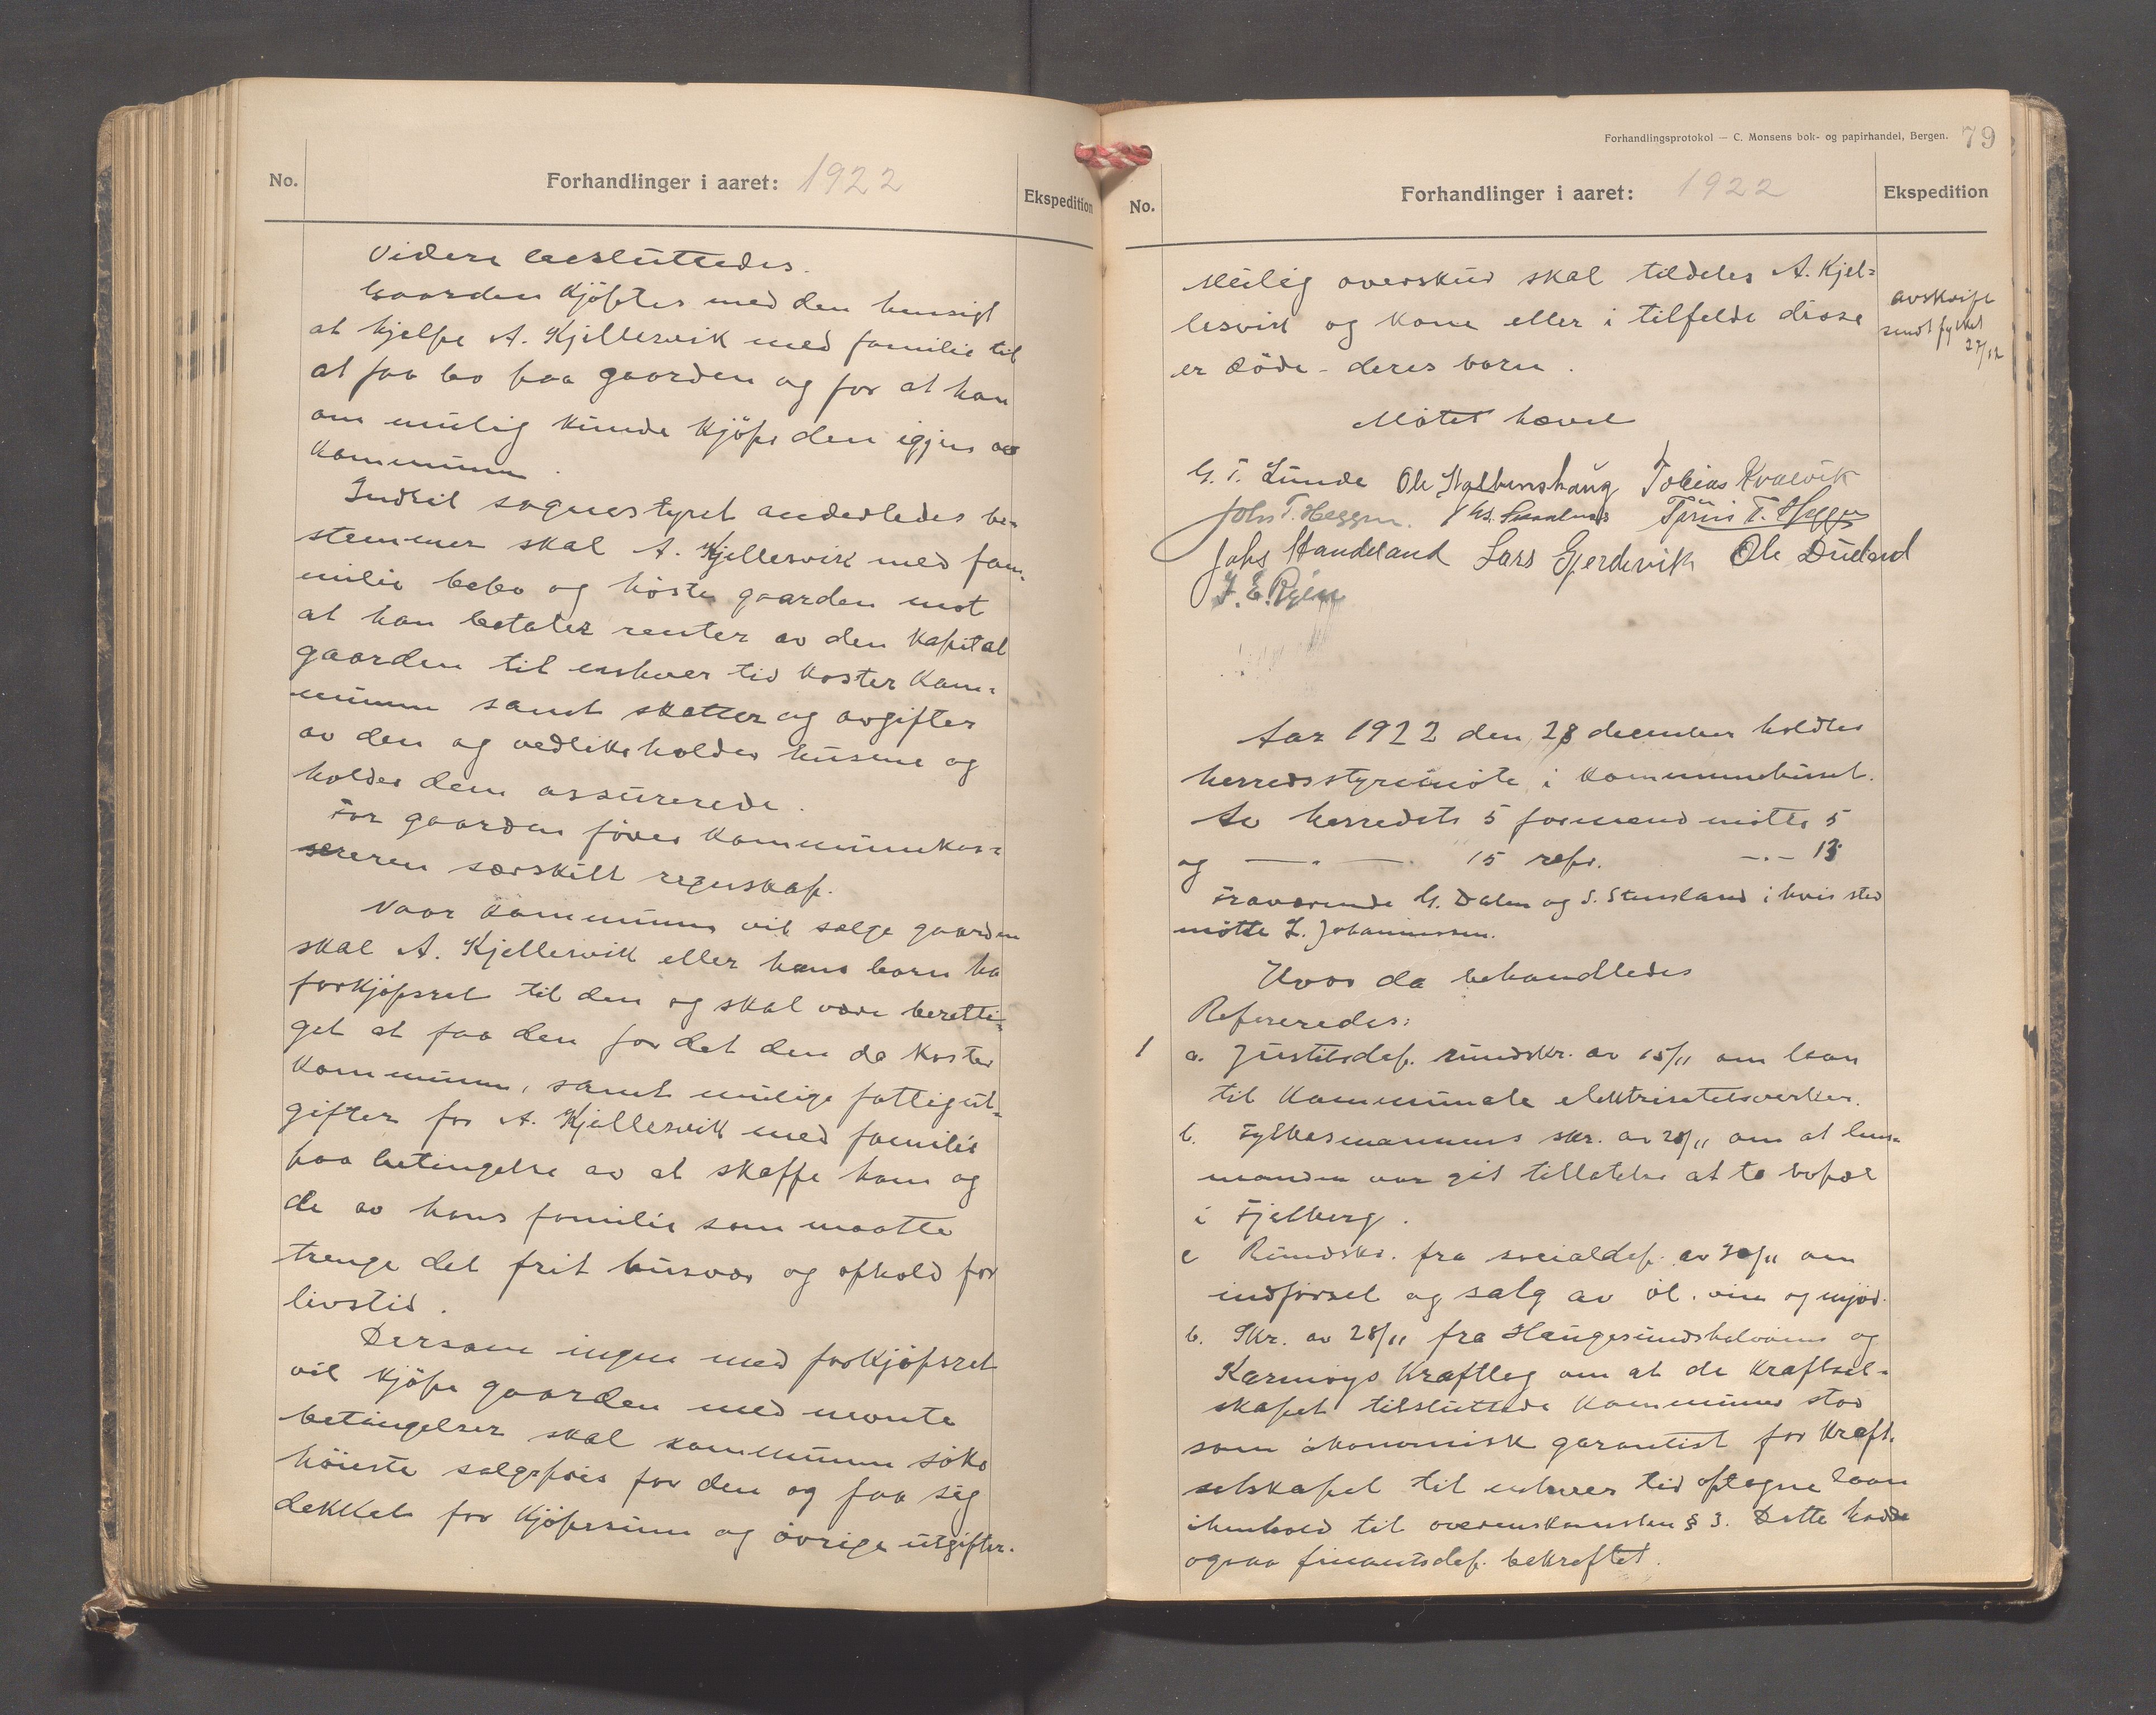 No.
Forhandlinger i aaret: 1922
Ekspedition
Videre besluttedes.
Gaarden kjöptes med den hensigt
at hjelpe A. Kjellesvik med familie til
at faa bo paa gaarden og for at han
om mulig kunde kjöpe den igjen av
kommunen.
Indtil sognestyret anderledes be-
stemmer skal A. Kjellesvik med fam-
milie bebo og höste gaarden mot
at han betaler renter av den kapital
gaarden til enhver tid koster kom-
munen samt skatter og avgifter
av den og vedlikeholder husene og
holder dem assurerede.
For gaarden förer kommunekas-
sereren særskilt regnskap.
Naar kommunen vil sælge gaarden
skal A. Kjellesvik eller hans barn ha
forkjöpsret til den og skal være beretti-
get at faa den for det den da koster
kommunen, samt mulige fattigut-
gifter for A. Kjellesvik med familie
paa betingelse av at skaffe ham og
de av hans familie som maatte
trenge det frit husvær og ophold for
livstid.
Dersom ingen med forkjöpsret
vil kjöpe gaarden med nevnte
betingelser skal kommunen söke
höieste salgspris for den og faa sig
dekket for kjöpesum og övrige utgifter.
Forhandlingsprotokol — C. Monsens bok- og papirhandel, Bergen. 79
No.
Forhandlinger i aaret: 1922
Ekspedition
Mulig overskud skal tildeles A. Kjel-
lesvik og kone eller i tilfelde disse
er döde - deres barn.
avskrift
sendt fylket
27/12
Mötet hævet
G. T. Lunde Ole Tobias Kvalvik
Johs T. Heggen. T. Heggen
Johs Handeland Lars Gjerdevik Ole
J. E.
Aar 1922 den 28 december holdtes
herredsstyremöte i kommunehuset.
Av herredets 5 formend mötte 5
og — " — 15 repr. —"— 13
Fraværende G. Dalen og S. Stensland i hvis sted
mötte L. Johannessen.
Hvor da behandledes
Refereredes:
1
a. Justitsdep. rundskr. av 15/11 om laan
til kommunale elektrisitetsverker.
b. Fylkesmannens skr. av 28/11 om at lens-
manden var git tillatelse at ta bopæl
i Fjelberg.
c Rundskr. fra socialdep. av 30/11 om
indförsel og salg av öl, vin og mjöd.
b. Skr. av 28/11 fra Haugesundshalvöens og
Karmöys kraftlag om at de kraftsel-
skapet tilsluttede kommuner stod
som ökonomisk garantist for kraft-
selskapet til enhver tid optagne laan
ihenhold til overenskomsten § 3. Dette hadde
ogsaa finantsdep. bekreftet.